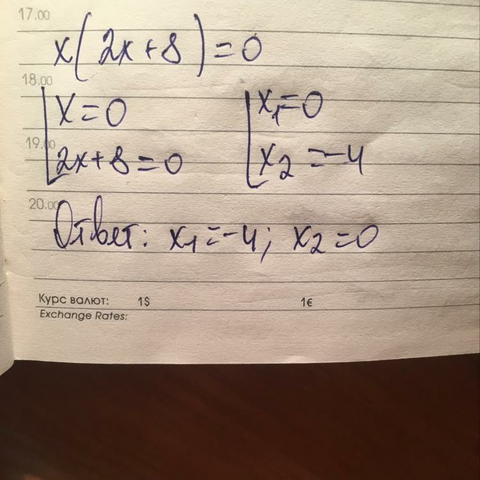 17.00
x(2x+8)=0
18.00
x=0 x₁=0
19.00
2x+8=0 x₂=-4
20.00
Ответ: x₁=-4; x₂=0
Курс валют: 1$ 1€
Exchange Rates: